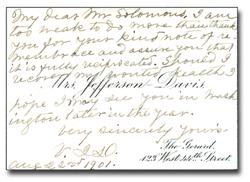 My dear Mr Solomons, I am
too weak to do more than thank
you for your kind note of re-
membrance and assure you that
it is fully reciprocated. Should I
recover my wonted health I
Mrs. Jefferson Davis.
hope I may see you in Wash-
ington later in the year.
Very sincerely yours
V. J. D.
The Gerard,
Aug 22nd 1901.
123 West 44th Street.